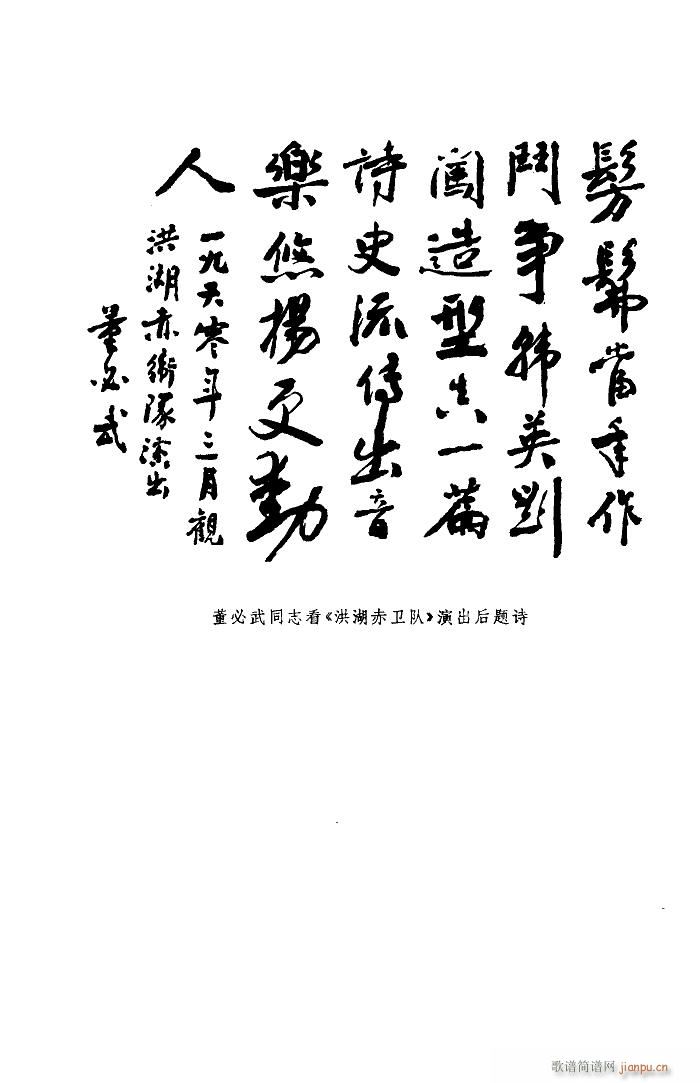 髣髴當年作
鬥争韩英劉
闖造型真一篇
詩史流傳出音
樂悠揚更動
人
一九六零年三月觀
洪湖赤衛隊演出
董必武
董必武同志看《洪湖赤卫队》演出后题诗
歌谱简谱网 jianpu.cn